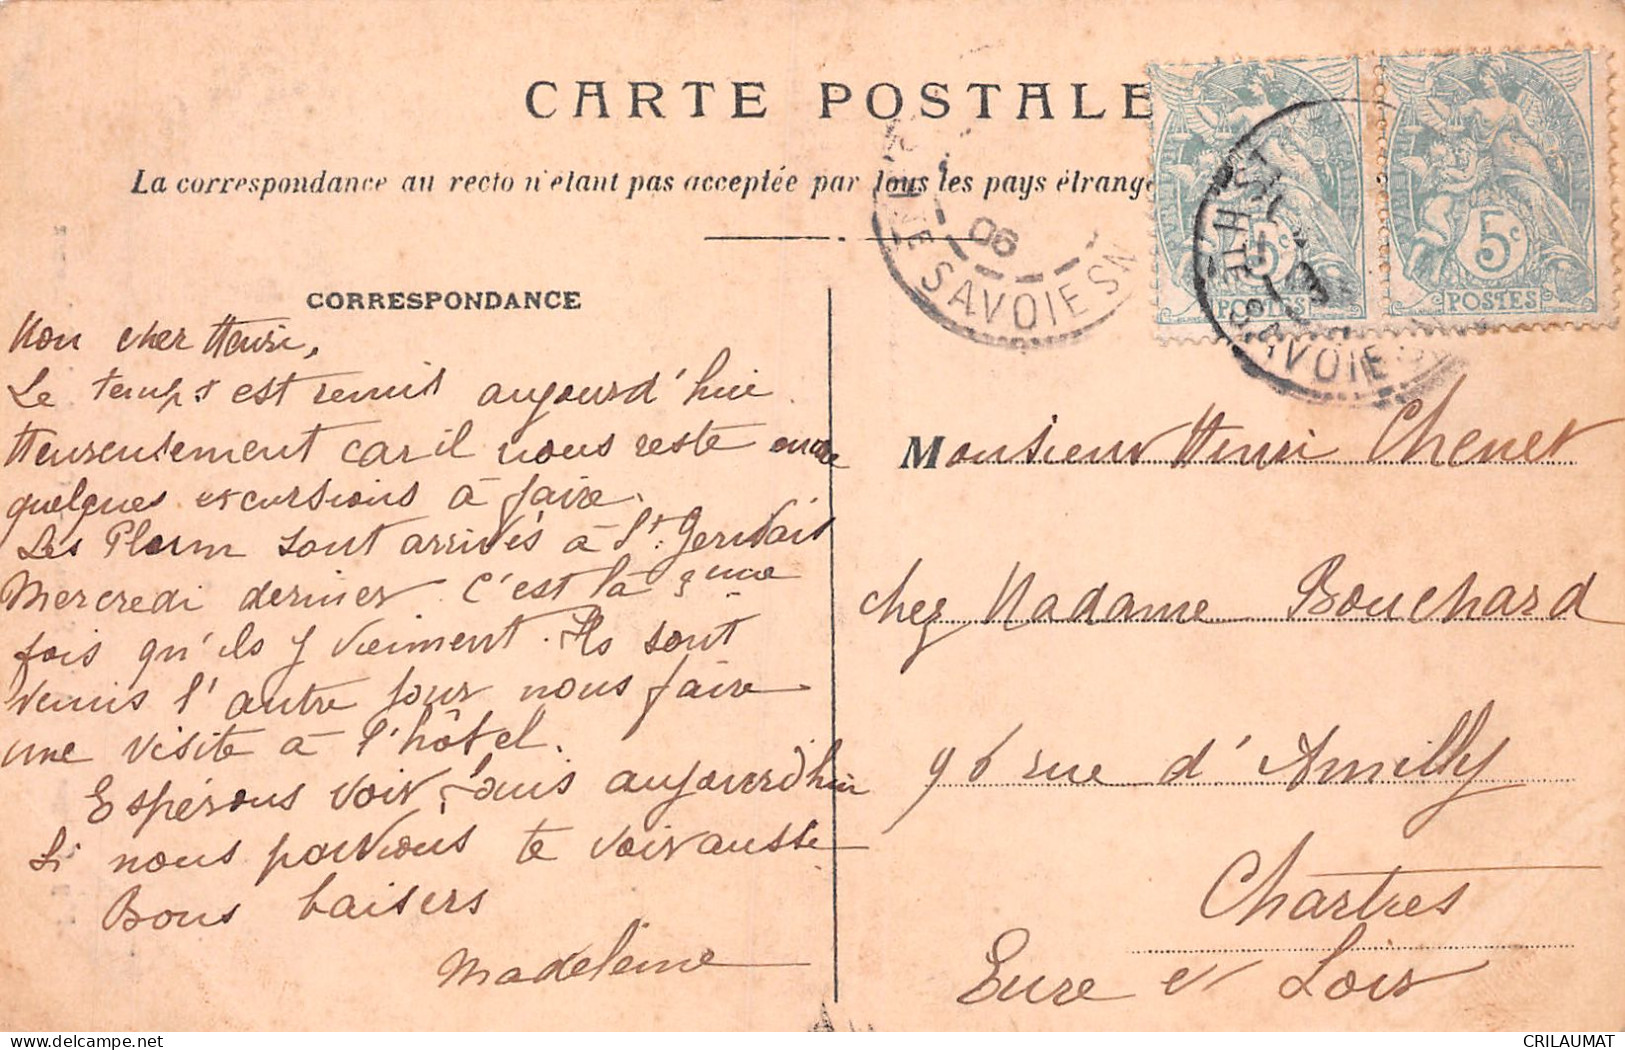 CARTE POSTALE
La correspondance au recto n'étant pas acceptée par tous les pays étrange
CORRESPONDANCE
Mon cher Henri,
Le temps est remis aujourd'hui
Heureusement car il nous reste encore
quelques excursions à faire.
Les Plum sont arrivés à St Gervais
Mercredi dernier. C'est la 3ème
fois qu'ils y viennent. Ils sont
venus l'autre jour nous faire
une visite à l'hôtel.
Espérons voir Louis aujourd'hui
Si nous pouvions te voir aussi
Bons baisers
Madeleine
06
HTE SAVOIE
HTE SAVOIE
5c
POSTES
5c
POSTES
Monsieur Henri Chenet
chez Madame Bouchard
96 rue d'Amilly
Chartres
Eure et Loir
CRILAUMAT